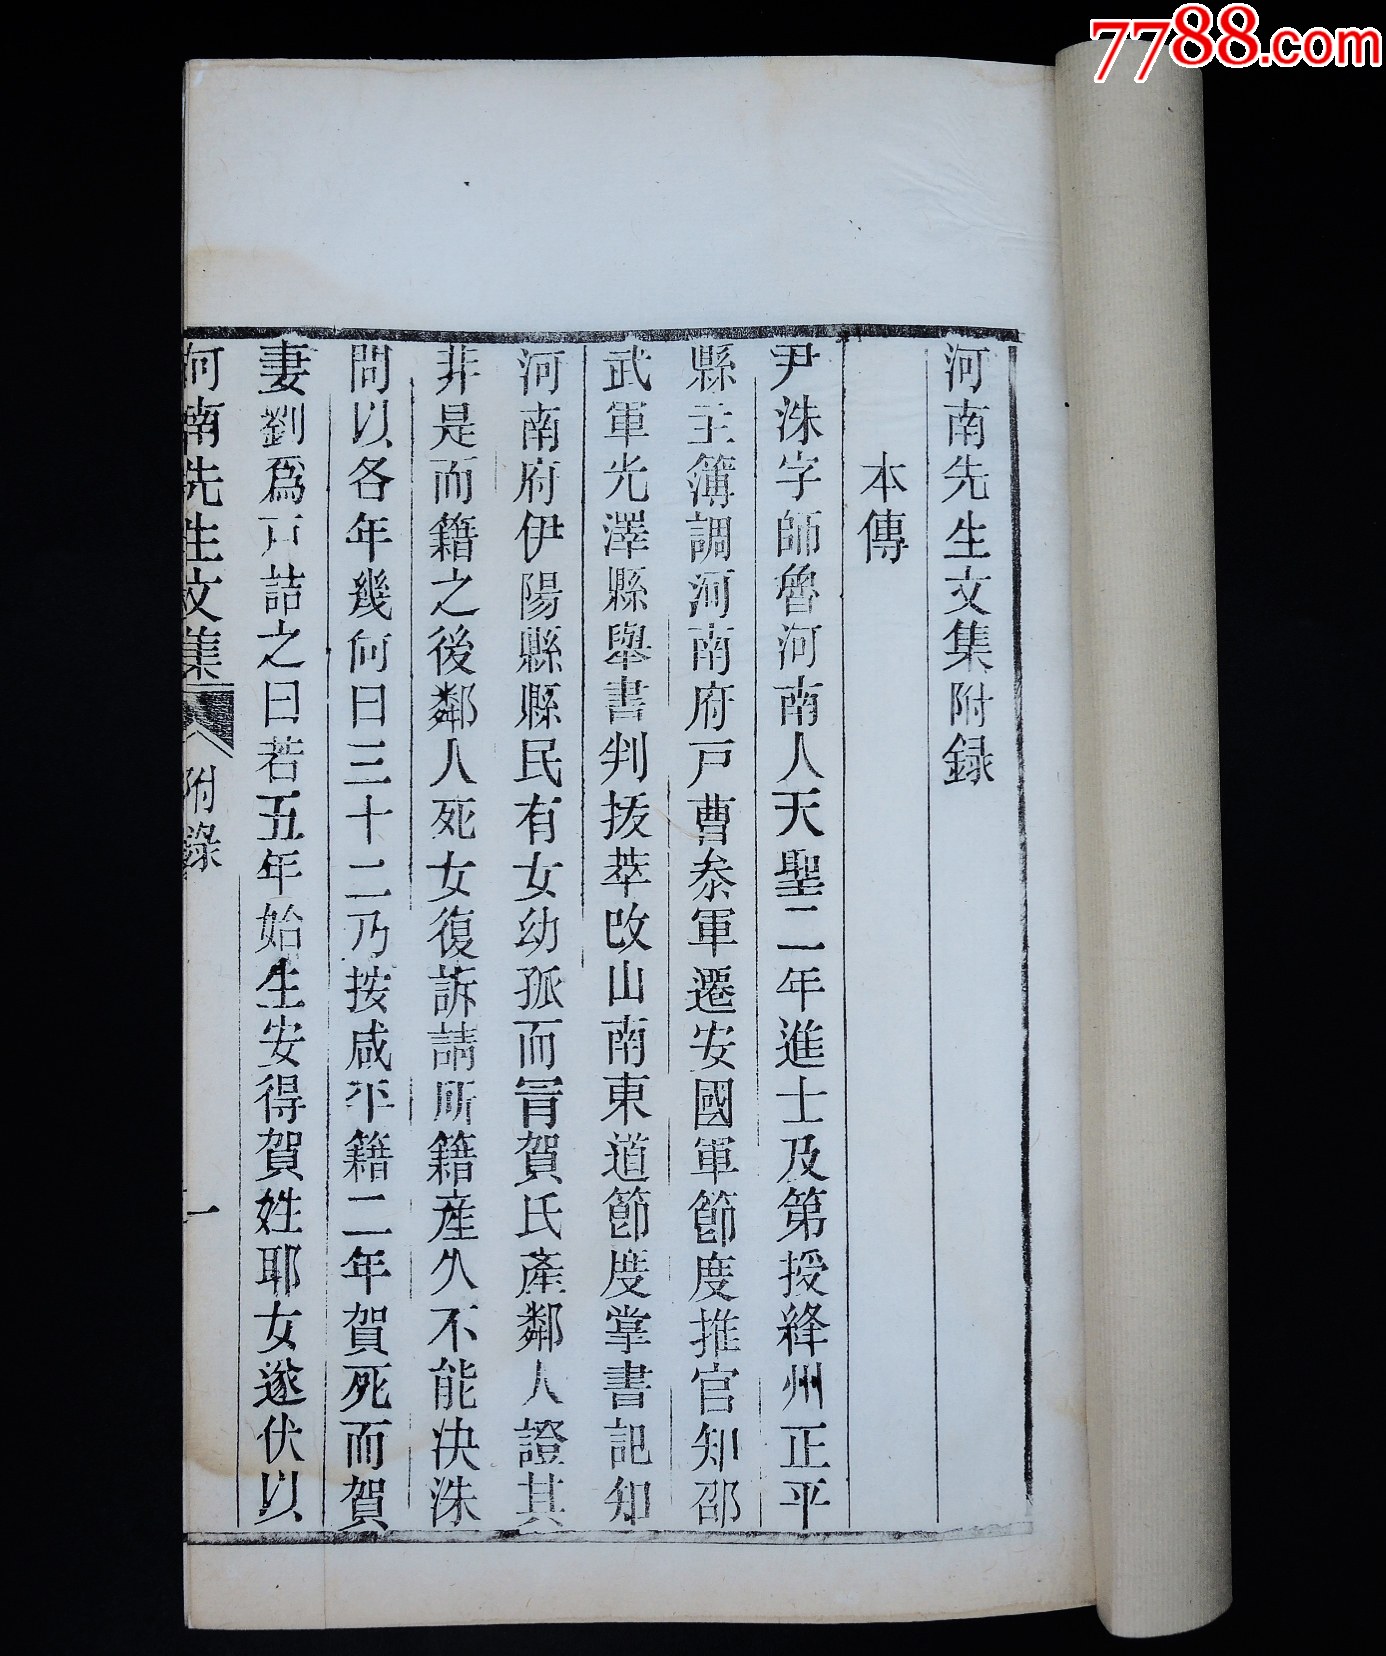 7788.com
河南先生文集附録
本傳
尹洙字師魯河南人天聖二年進士及第授絳州正平
縣主簿調河南府戸曹叅軍遷安國軍節度推官知邵
武軍光澤縣舉書判拔萃改山南東道節度掌書記知
河南府伊陽縣縣民有女幼孤而冐賀氏產鄰人證其
非是而籍之後鄰人死女復訴請所籍產久不能決洙
問以各年幾何曰三十二乃按咸平籍二年賀死而賀
妻劉爲戸詰之曰若五年始生安得賀姓耶女遂伏以
河南先生文集 附錄 一